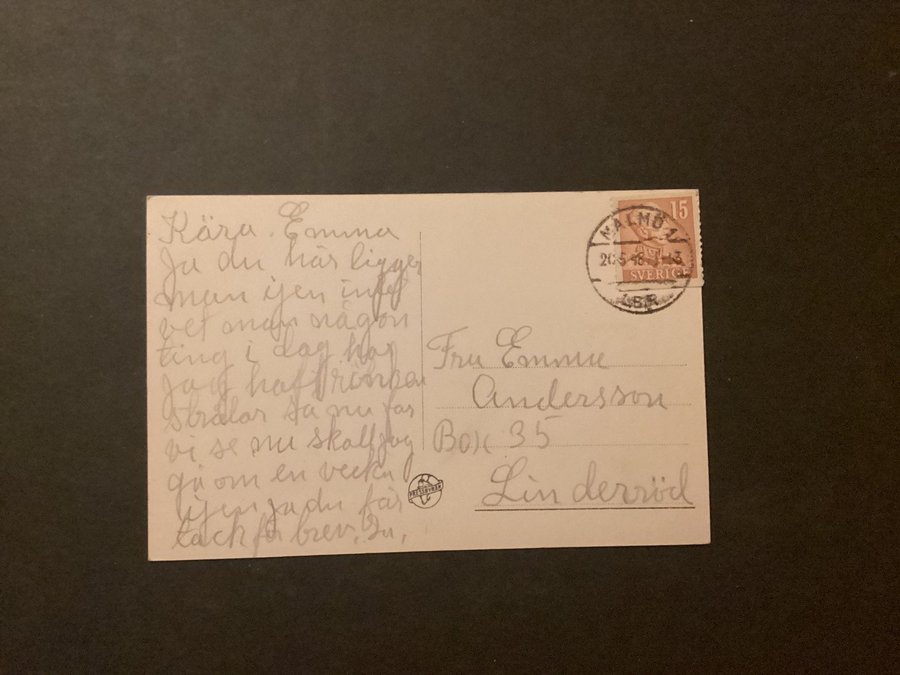 Kära Emma
Ja du här ligger
man ijen intet
vet man någon
ting i dag har
jag haft röntgen
strålar så nu får
vi se nu skall jag
gå om en vecka
ijen ja du får
tack för brev.
15
SVERIGE
MALMÖ 1
LBR
Fru Emma
Andersson
Box 35
Linderröd
PRESSBYRÅN